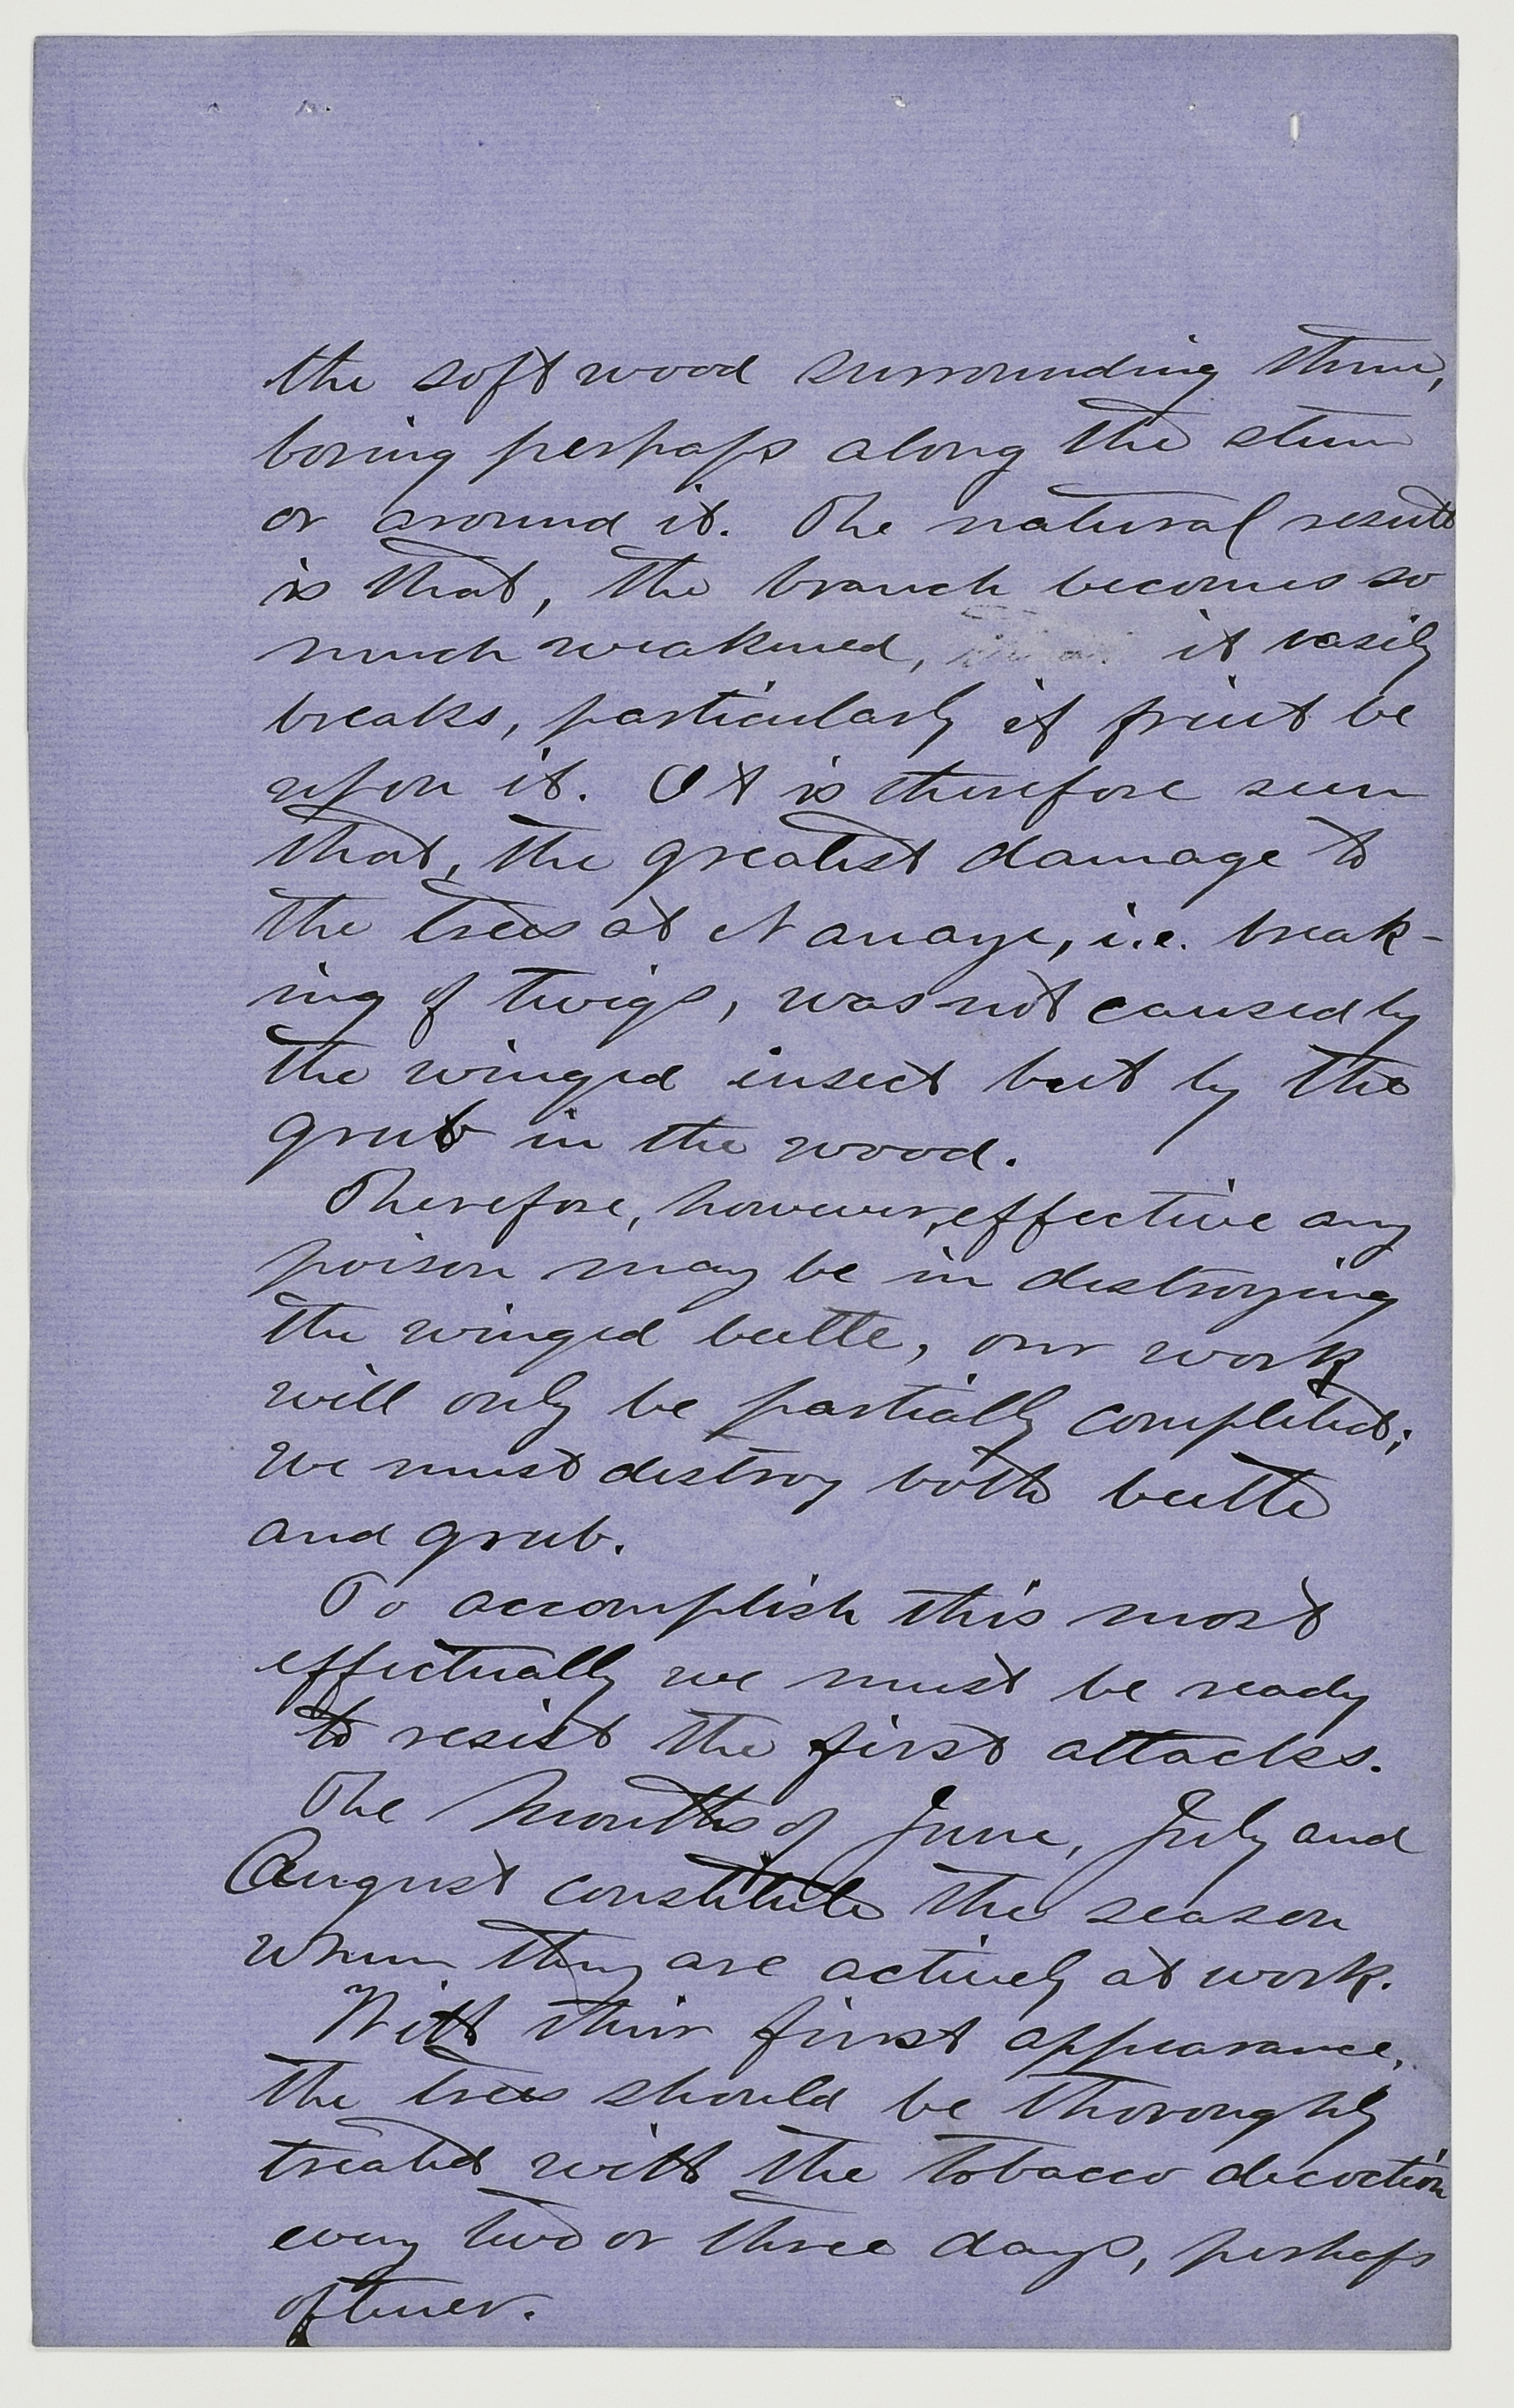 the soft wood surrounding them,
boring perhaps along the stem
or around it. The natural result
is that, the branch becomes so
much weakened, it easily
breaks, particularly if fruit be
upon it. It is therefore seen
that, the greatest damage to
the trees at Nanaye, i.e. break-
ing of twigs, was not caused by
the winged insect but by the
grub in the wood.
Therefore, however, effective any
poison may be in destroying
the winged beetle, our work
will only be partially completed;
we must destroy both beetle
and grub.
To accomplish this most
effectually we must be ready
to resist the first attacks.
The months of June, July and
August constitute the season
when they are actively at work.
With their first appearance,
the trees should be thoroughly
treated with the tobacco decoction
every two or three days, perhaps
oftener.